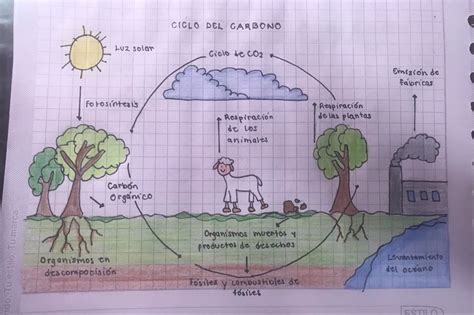 CICLO DEL CARBONO
Luz solar
Ciclo de CO2
Emisión de
fábricas
Fotosíntesis
Respiración
de los
animales
Respiración
de las plantas
Carbón
Orgánico
Organismos muertos y
productos de desechos
Organismos en
descomposición
Levantamiento
del océano
Fósiles y combustibles de
fósiles
ESTILO